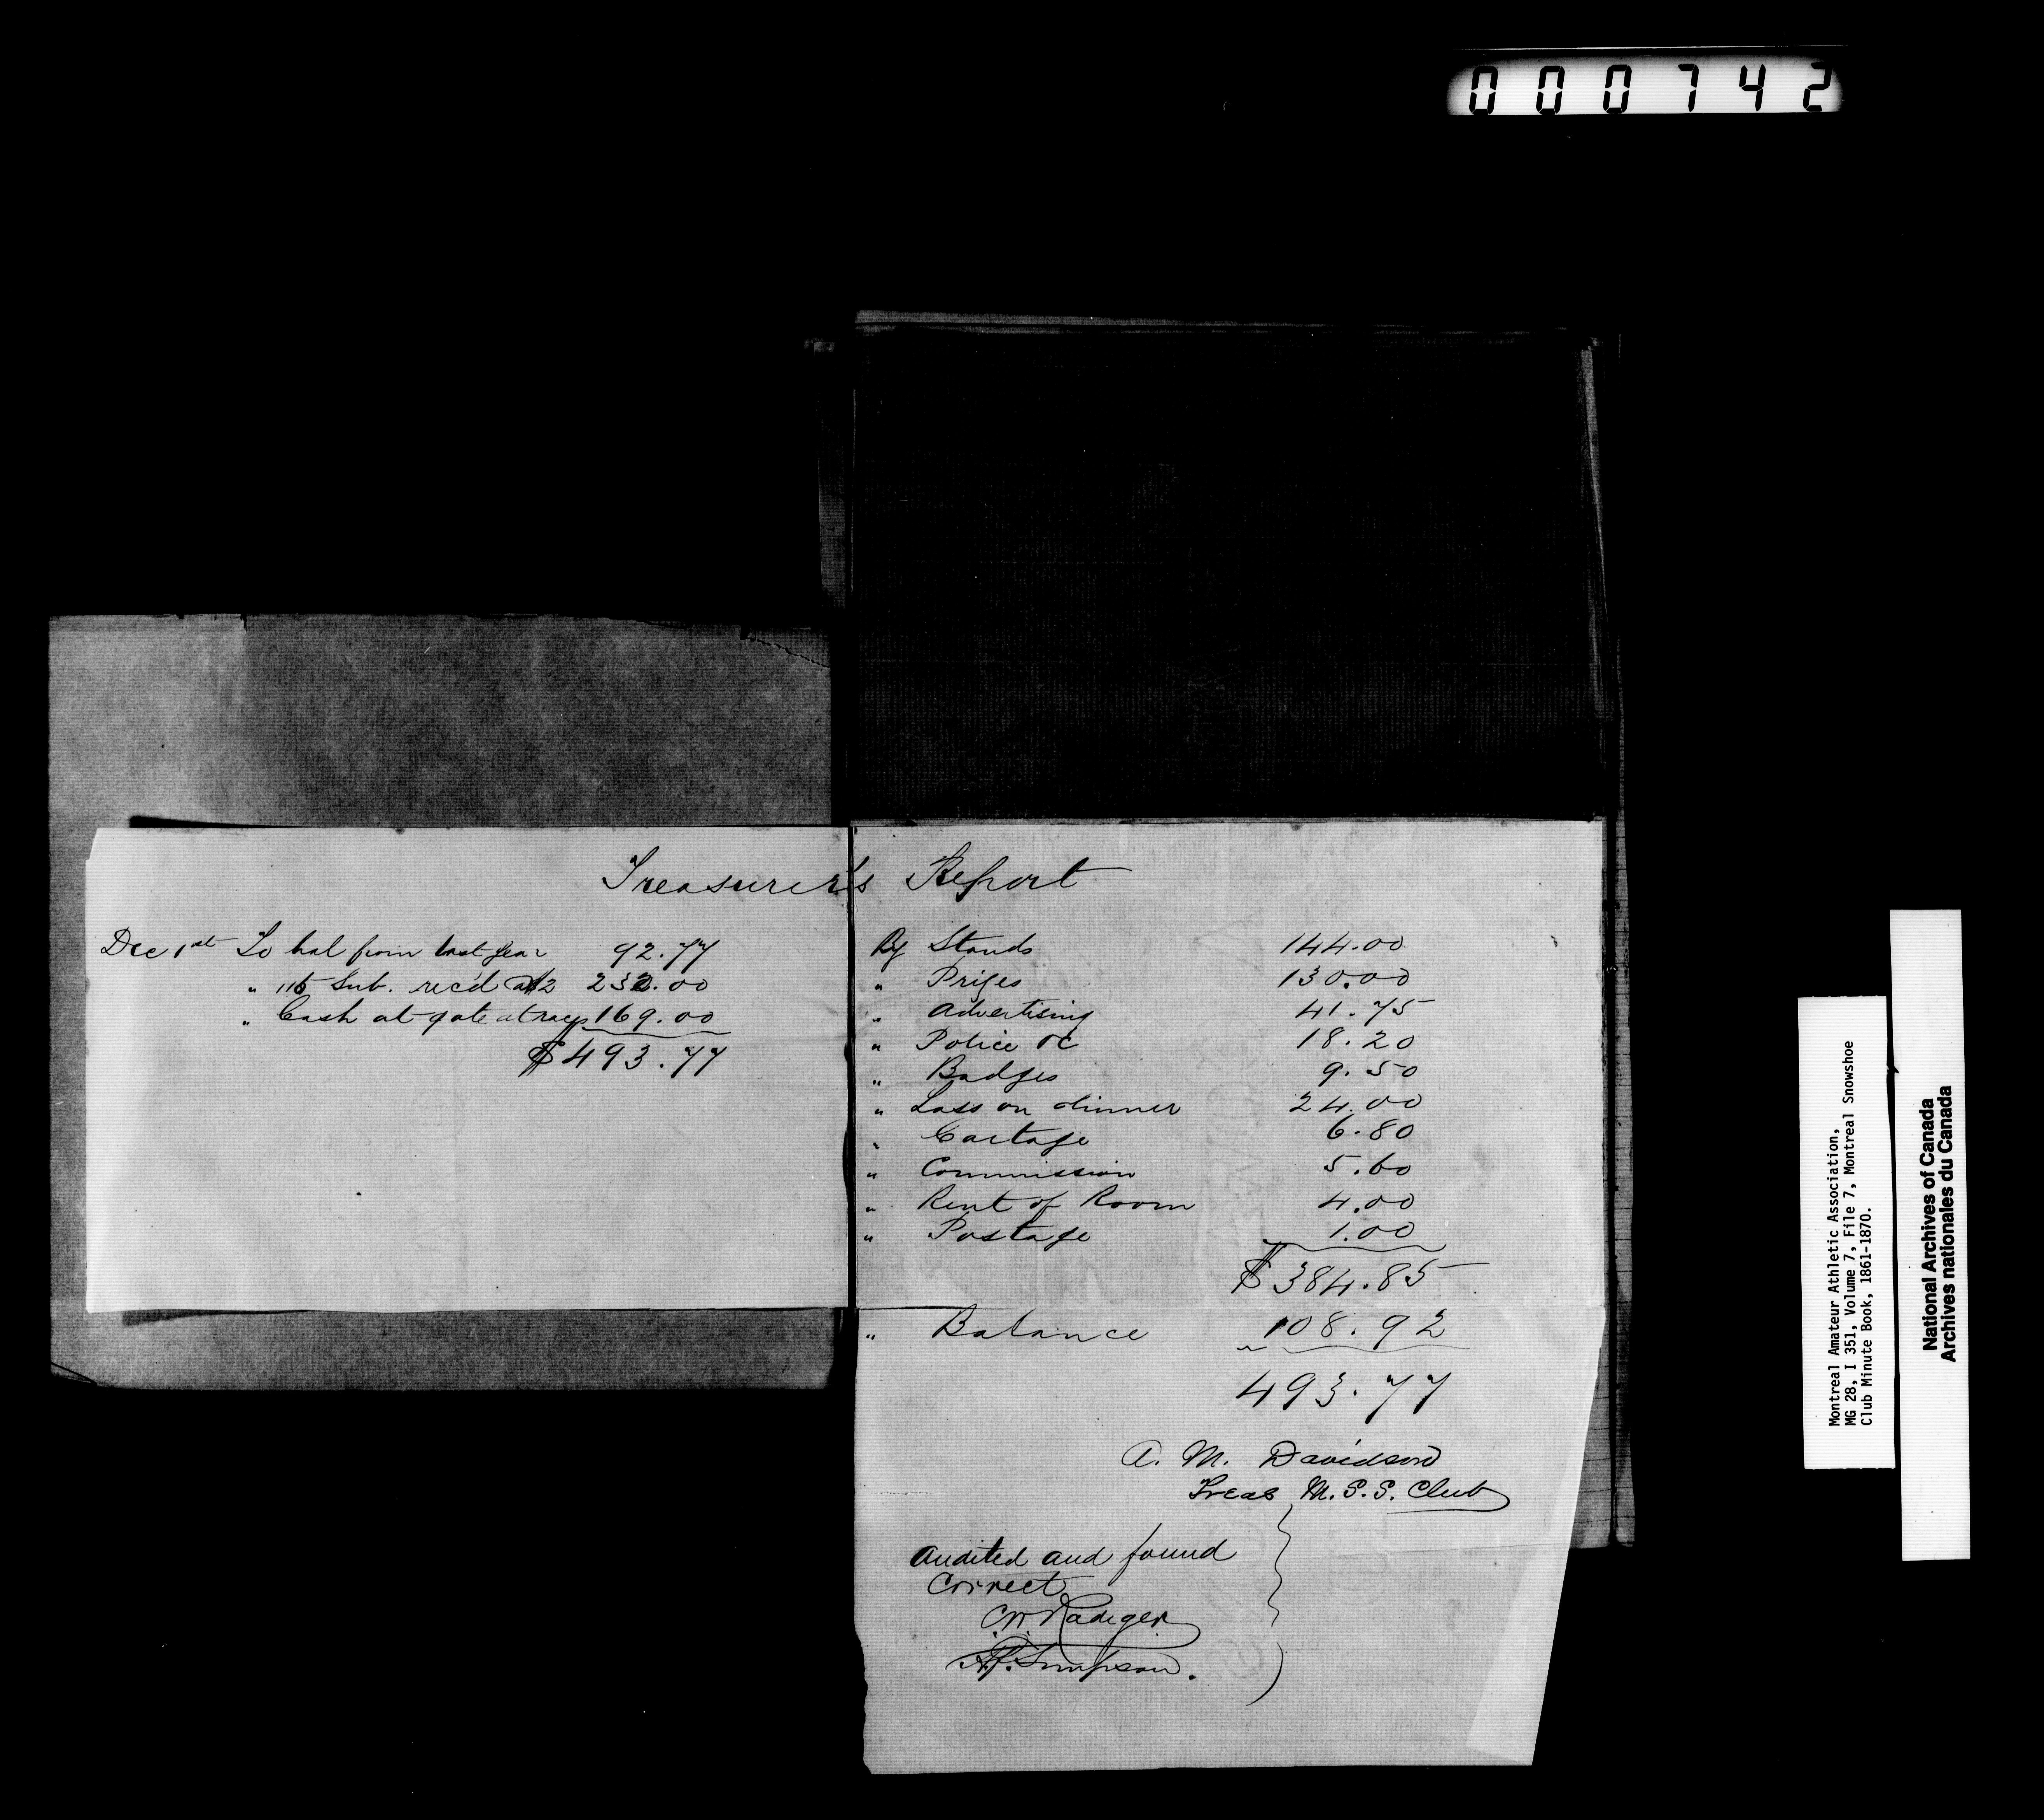 000742
Treasurer's Report
Dec 1st To bal from last year 92.77
" 116 Sub. rec'd at $2 232.00
" Cash at gate at races 169.00
$493.77
By Stands 144.00
" Prizes 130.00
" Advertising 41.75
" Police &c 18.20
" Badges 9.50
" Loss on dinner 24.00
" Cartage 6.80
" Commission 5.60
" Rent of Room 4.00
" Postage 1.00
$384.85
" Balance 108.92
493.77
A. M. Davidson
Treas M.S.S. Club
Audited and found
Correct
Radiger
Simpson.
Montreal Amateur Athletic Association,
MG 28, I 351, Volume 7, File 7, Montreal Snowshoe
Club Minute Book, 1861-1870.
National Archives of Canada
Archives nationales du Canada